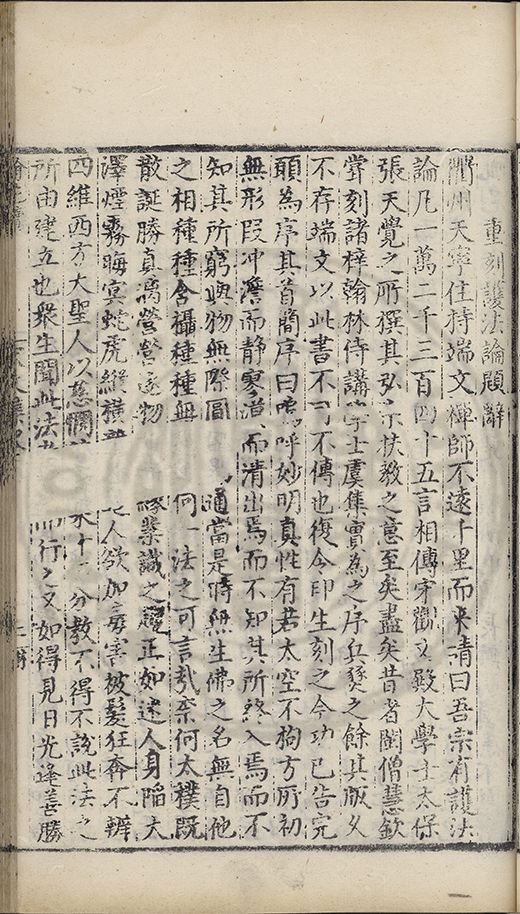 重刻護法論題辭
衢州天寧住持端文禪師不遠千里而來請曰吾宗有護法
論凡一萬二千三百四十五言相傳宋觀文殿大學士太保
張天覺之所撰其弘宗扶教之意至矣盡矣昔者閩僧慧欽
嘗刻諸梓翰林侍講學士虞集實為之序兵燹之餘其版久
不存端文以此書不可不傳也復令印生刻之今功已告完
願為序其首簡序曰嗚呼妙明真性有若太空不拘方所初
無形段冲澹而靜寥漠而清出焉而不知其所終入焉而不
知其所窮與物無際圓通當是時無生佛之名無自他
之相種種含攝種種無何一法之可言哉柰何太樸既
散誕勝真漓營營逐物唯業識之趨正如迷人身陷大
澤煙霧晦冥蛇虎縱橫人欲加毒害被髮狂奔不辨
四維西方大聖人以慈憫分教不得不說此法之
所由建立也眾生聞此法而行之又如得見日光逢善勝